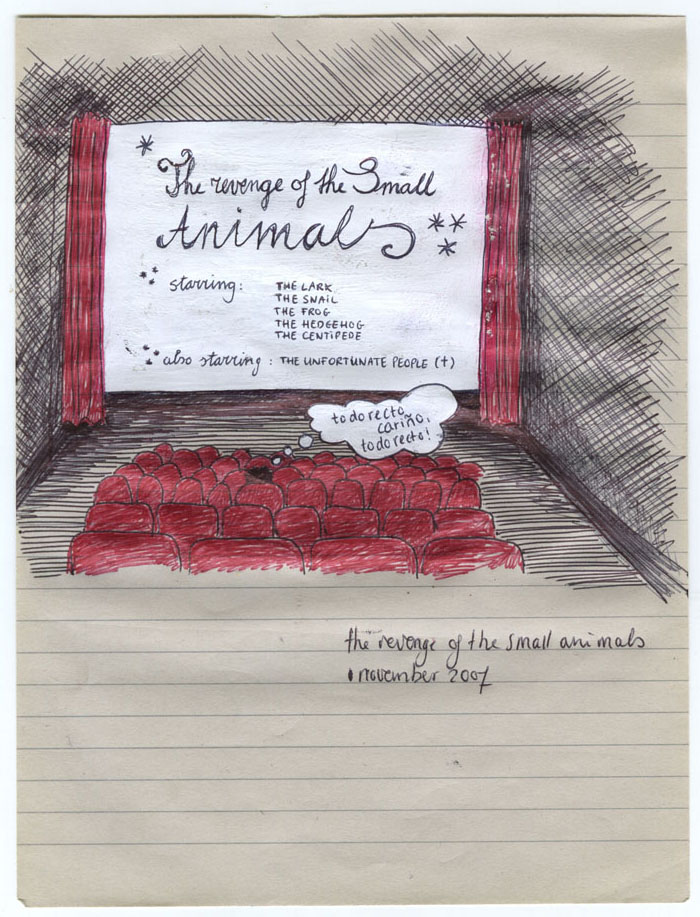 The revenge of the Small
Animals
starring:
THE LARK
THE SNAIL
THE FROG
THE HEDGEHOG
THE CENTIPEDE
also starring: THE UNFORTUNATE PEOPLE (†)
todo recto,
cariño,
todo recto!
the revenge of the small animals
1 november 2007